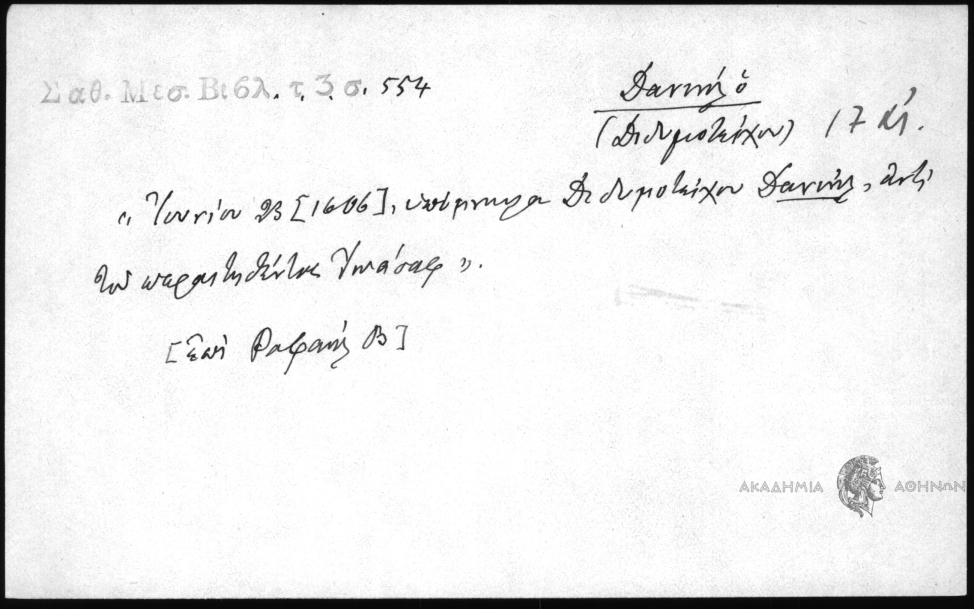 Σαθ. Μεσ. Βιβλ. τ. 3 σ. 554
Δανιήλ ὁ
(Διδυμοτείχου) 17 αἰ.
"Ἰουνίου 23 [1606], ὑπόμνημα Διδυμοτείχου Δανιήλ, ἀντὶ
τοῦ παραιτηθέντος Ἰωάσαφ".
[Ἐπὶ Ραφαήλ Β]
ΑΚΑΔΗΜΙΑ ΑΘΗΝΩΝ